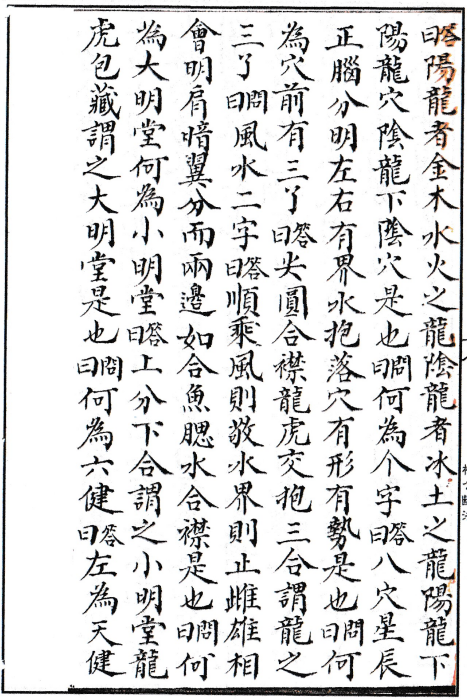 答曰陽龍者金木水火之龍陰龍者冰土之龍陽龍下
陽龍穴陰龍下陰穴是也問曰何為个字答曰八穴星辰
正腦分明左右有界水抱落穴有形有勢是也問曰何
為穴前有三丫答曰尖圓合襟龍虎交抱三合謂龍之
三丫問曰風水二字答曰順乘風則敬水界則止雌雄相
會明肩暗翼分而兩邊如合魚腮水合襟是也問曰何
為大明堂何為小明堂答曰上分下合謂之小明堂龍
虎包藏謂之大明堂是也問曰何為六健答曰左為天健